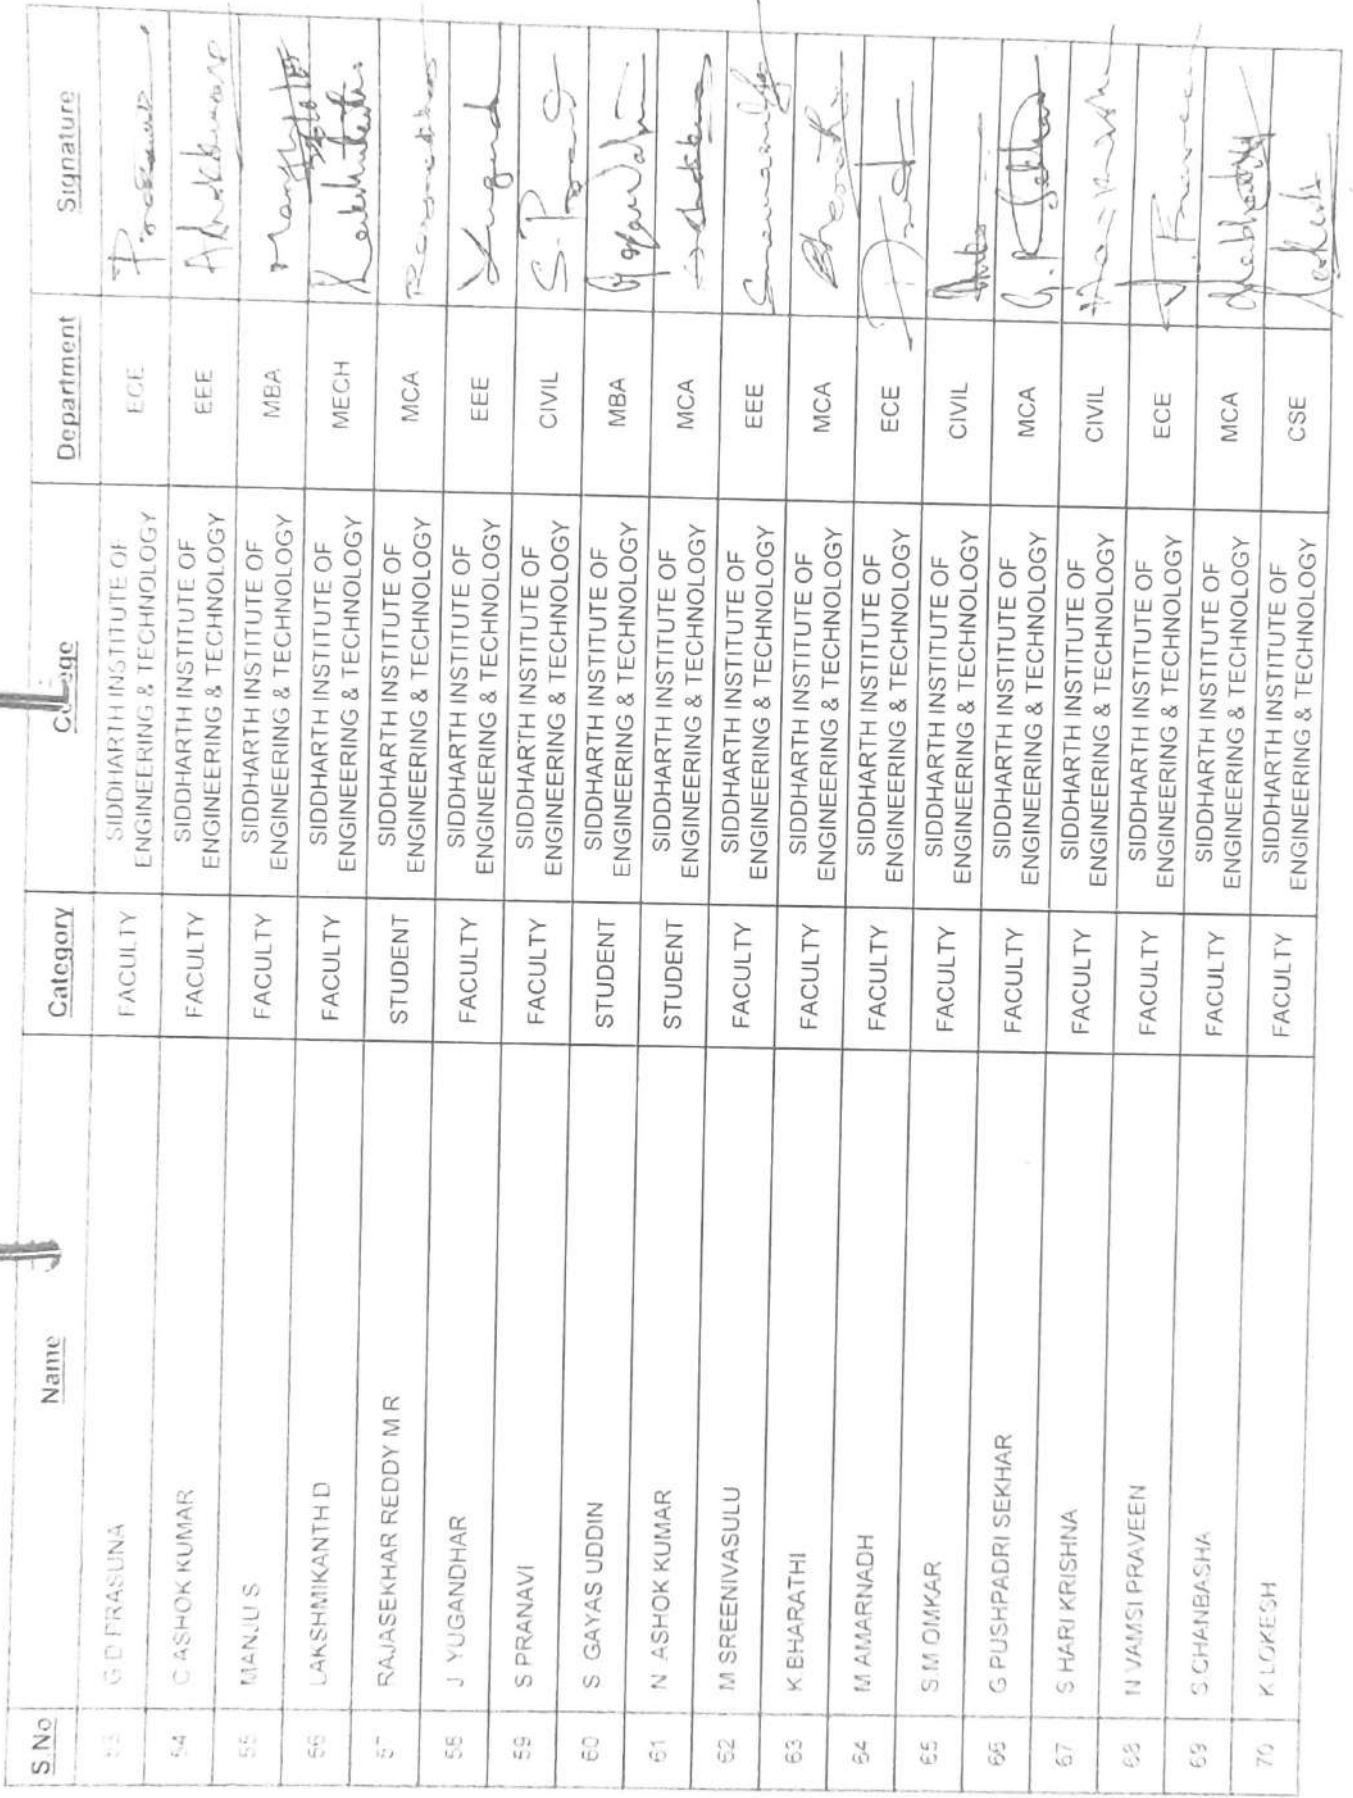 S.No Name Category College Department Signature
53 G D PRASUNA FACULTY SIDDHARTH INSTITUTE OF ECE
ENGINEERING & TECHNOLOGY
54 C ASHOK KUMAR FACULTY SIDDHARTH INSTITUTE OF EEE
ENGINEERING & TECHNOLOGY
55 MANJU S FACULTY SIDDHARTH INSTITUTE OF MBA
ENGINEERING & TECHNOLOGY
56 LAKSHMIKANTH D FACULTY SIDDHARTH INSTITUTE OF MECH
ENGINEERING & TECHNOLOGY
57 RAJASEKHAR REDDY M R STUDENT SIDDHARTH INSTITUTE OF MCA
ENGINEERING & TECHNOLOGY
58 J YUGANDHAR FACULTY SIDDHARTH INSTITUTE OF EEE
ENGINEERING & TECHNOLOGY
59 S PRANAVI FACULTY SIDDHARTH INSTITUTE OF CIVIL
ENGINEERING & TECHNOLOGY
60 S GAYAS UDDIN STUDENT SIDDHARTH INSTITUTE OF MBA
ENGINEERING & TECHNOLOGY
61 N ASHOK KUMAR STUDENT SIDDHARTH INSTITUTE OF MCA
ENGINEERING & TECHNOLOGY
62 M SREENIVASULU FACULTY SIDDHARTH INSTITUTE OF EEE
ENGINEERING & TECHNOLOGY
63 K BHARATHI FACULTY SIDDHARTH INSTITUTE OF MCA
ENGINEERING & TECHNOLOGY
64 M AMARNADH FACULTY SIDDHARTH INSTITUTE OF ECE
ENGINEERING & TECHNOLOGY
65 S.M OMKAR FACULTY SIDDHARTH INSTITUTE OF CIVIL
ENGINEERING & TECHNOLOGY
66 G PUSHPADRI SEKHAR FACULTY SIDDHARTH INSTITUTE OF MCA
ENGINEERING & TECHNOLOGY
67 S HARI KRISHNA FACULTY SIDDHARTH INSTITUTE OF CIVIL
ENGINEERING & TECHNOLOGY
68 N VAMSI PRAVEEN FACULTY SIDDHARTH INSTITUTE OF ECE
ENGINEERING & TECHNOLOGY
69 S CHANBASHA FACULTY SIDDHARTH INSTITUTE OF MCA
ENGINEERING & TECHNOLOGY
70 K LOKESH FACULTY SIDDHARTH INSTITUTE OF CSE
ENGINEERING & TECHNOLOGY